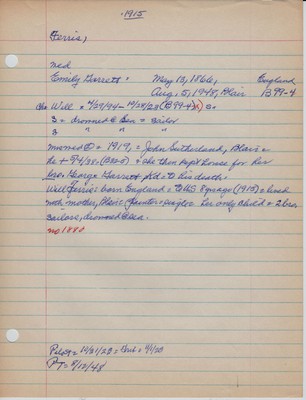 1915
Ferris,
med
Emily Garrett = May 13, 1866, England
Aug. 5, 1948, Blair B99-4
Will = 4/29/94 - 10/28/28 (B99-4) S=
3 = drowned @ Sea = Sailor
3 " " "
married ② = 1919, = John Sutherland, Blair =
he + 9/4/38. (B80-2) = she then kept house for her
bro. George Garrett to his death =
Will Ferris = born England = to US 8 yrage (1915) = lived
with mother, Blair, painter = single. Her only child & 2 bros
Sailors, drowned @ sea.
no 1880
Pilot = 10/31/28 = Ent. = 9/1/20
PT = 8/12/48